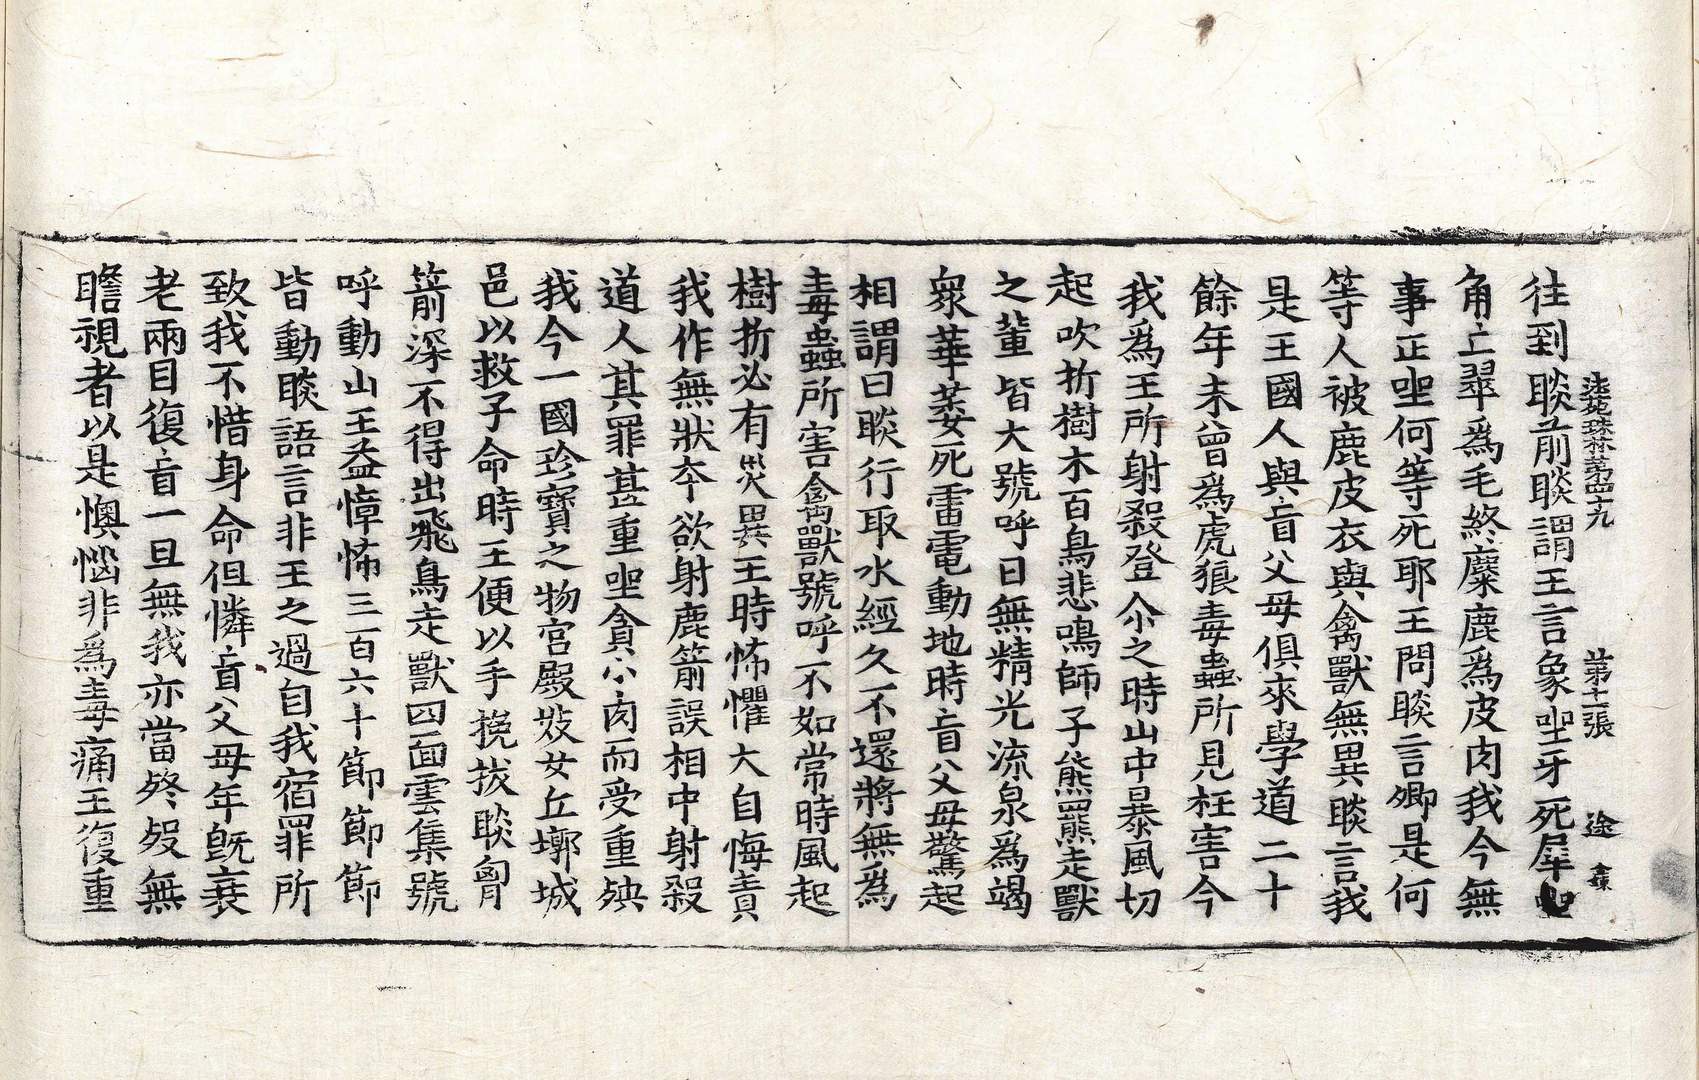 法苑珠林第四十九 第十一張 途
往到睒前睒謂王言象坐牙死犀坐
角亡翠爲毛終麋鹿爲皮肉我今無
事正坐何等死耶王問睒言卿是何
等人被鹿皮衣與禽獸無異睒言我
是王國人與盲父母俱來學道二十
餘年未曾爲虎狼毒蟲所見枉害今
我爲王所射殺登尒之時山中暴風切
起吹折樹木百鳥悲鳴師子熊羆走獸
之輩皆大號呼日無精光流泉爲竭
衆華萎死雷電動地時盲父母驚起
相謂曰睒行取水經久不還將無爲
毒蟲所害禽獸號呼不如常時風起
樹折必有灾異王時怖懼大自悔責
我作無狀夲欲射鹿箭誤相中射殺
道人其罪甚重坐貪小肉而受重殃
我今一國珍寶之物宮殿妓女丘墎城
邑以救子命時王便以手挽拔睒胷
箭深不得出飛鳥走獸四面雲集號
呼動山王益慞怖三百六十節節節
皆動睒語言非王之過自我宿罪所
致我不惜身命但憐盲父母年旣衰
老兩目復盲一旦無我亦當終歿無
瞻視者以是懊惱非爲毒痛王復重